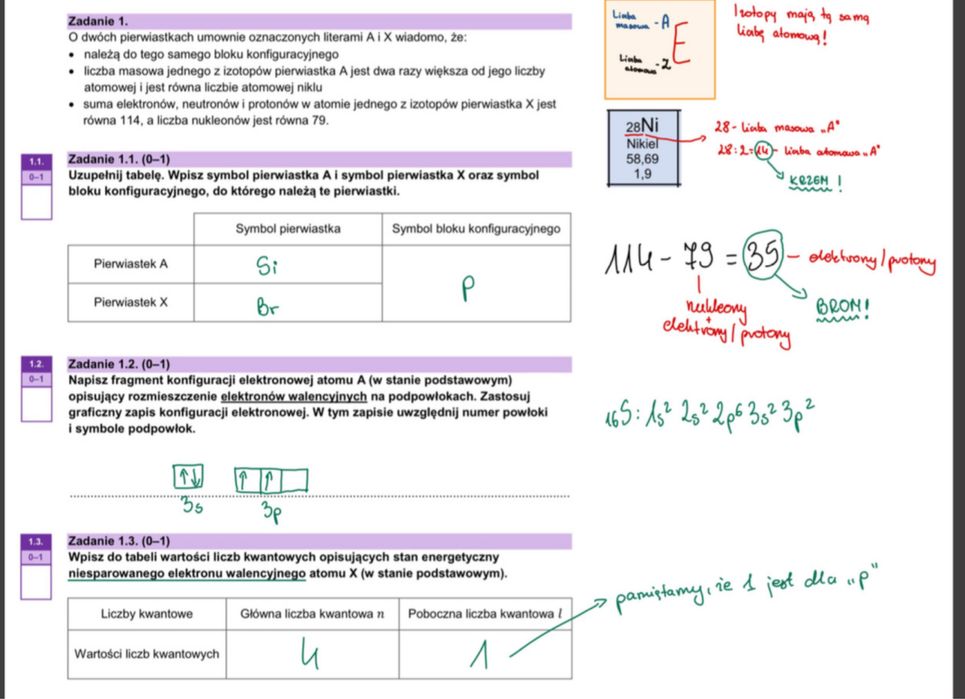 Zadanie 1.
O dwóch pierwiastkach umownie oznaczonych literami A i X wiadomo, że:
• należą do tego samego bloku konfiguracyjnego
• liczba masowa jednego z izotopów pierwiastka A jest dwa razy większa od jego liczby
atomowej i jest równa liczbie atomowej niklu
• suma elektronów, neutronów i protonów w atomie jednego z izotopów pierwiastka X jest
równa 114, a liczba nukleonów jest równa 79.
Liczba
masowa - A
E
Liczba
atomowa - Z
Izotopy mają tą samą
liczbę atomową!
28Ni
Nikiel
58,69
1,9
28 - liczba masowa „A"
28:2=14 - liczba atomowa „A"
KRZEM!
1.1.
0–1
Zadanie 1.1. (0–1)
Uzupełnij tabelę. Wpisz symbol pierwiastka A i symbol pierwiastka X oraz symbol
bloku konfiguracyjnego, do którego należą te pierwiastki.
Symbol pierwiastka Symbol bloku konfiguracyjnego
Pierwiastek A Si
p
Pierwiastek X Br
114 - 79 = 35 - elektrony/protony
nukleony
elektrony/protony
BROM!
1.2.
0–1
Zadanie 1.2. (0–1)
Napisz fragment konfiguracji elektronowej atomu A (w stanie podstawowym)
opisujący rozmieszczenie elektronów walencyjnych na podpowłokach. Zastosuj
graficzny zapis konfiguracji elektronowej. W tym zapisie uwzględnij numer powłoki
i symbole podpowłok.
16S: 1s² 2s² 2p⁶ 3s² 3p²
↑↓ ↑ ↑
3s 3p
1.3.
0–1
Zadanie 1.3. (0–1)
Wpisz do tabeli wartości liczb kwantowych opisujących stan energetyczny
niesparowanego elektronu walencyjnego atomu X (w stanie podstawowym).
Liczby kwantowe Główna liczba kwantowa n Poboczna liczba kwantowa l
Wartości liczb kwantowych 4 1
pamiętamy, że 1 jest dla „p"